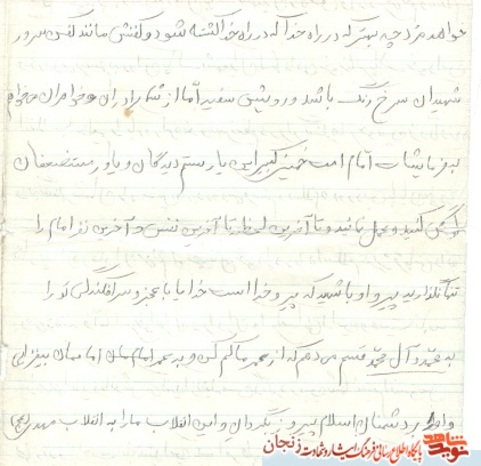 خواهد مرد چه بهتر که در راه خدا که در راه خدا کشته شود و کفنش مانند کفن سرور
شهیدان سرخ رنگ باشد و رویش سفید اما از شما برادران و خواهران میخواهم
به فرمایشات امام امت خمینی کبیر این یار ستم دیدگان و یاور مستضعفان
گوش کنید و عمل نمائید و تا آخرین لحظه تا آخرین نفس و آخرین نفر امام را
تنها نگذارید پیرو او باشید که پیرو خدا است خدایا با عجز و سرافکندگی تو را
به محمد و آل محمد قسم می دهم که از عمر ما کم کن و به عمر امام مان بیفزای
و او را بر دشمنان اسلام پیروز بگردان و این انقلاب ما را به انقلاب مهدی
نوید شاهد
پایگاه اطلاع رسانی فرهنگ ایثار و شهادت زنجان